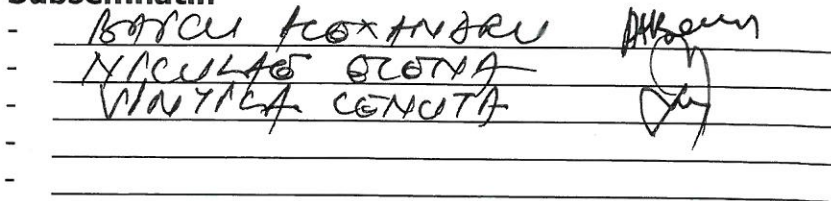 Subsemnatii:
- BARCU ALEXANDRU
- NICULAE ELENA
- VINTILA LENUTA
-
-